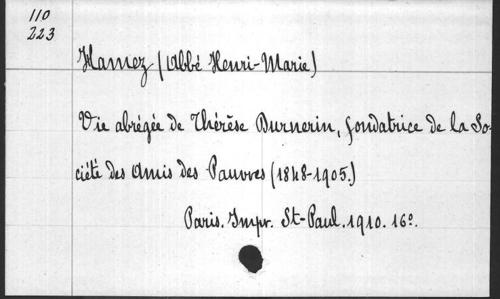 110
223
Hamez (Abbé Henri-Marie)
Vie abrégée de Thérèse Durnerin, fondatrice de la So-
ciété des Amis des Pauvres (1848-1905.)
Paris. Impr. St-Paul. 1910. 16º.